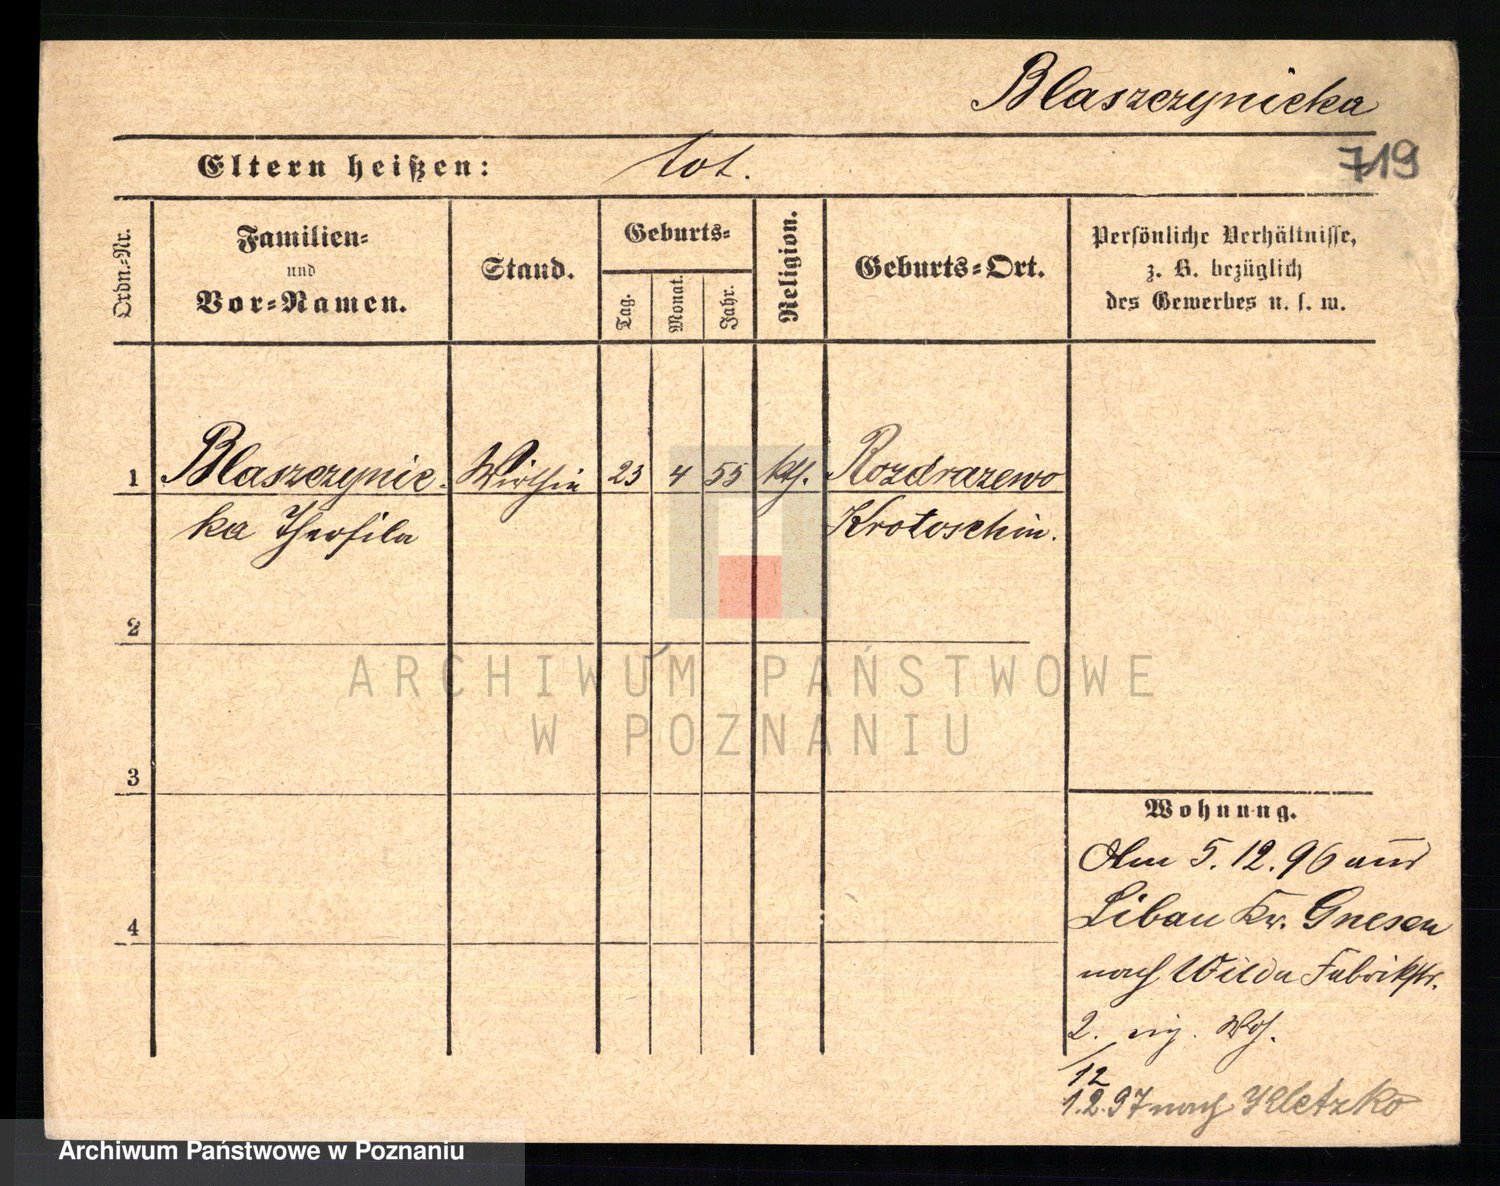 Blaszczynicka
719
Eltern heißen: tot.
Ordn.-Nr.
Familien-
und
Vor-Namen.
Stand.
Geburts-
Tag.
Monat.
Jahr.
Religion.
Geburts-Ort.
Persönliche Verhältnisse,
z. B. bezüglich
des Gewerbes u. s. w.
1 Blaszczynic- Wirthin 23 4 55 kth. Rozdrazewo
ka Theofila Krotoschin.
2
3
4
ARCHIWUM PAŃSTWOWE
W POZNANIU
Wohnung.
Am 5.12.96 aus
Libau Kr. Gnesen
nach Wilda Fabrikstr.
2. eig. Wh.
12
1.2.97 nach Kletzko
Archiwum Państwowe w Poznaniu